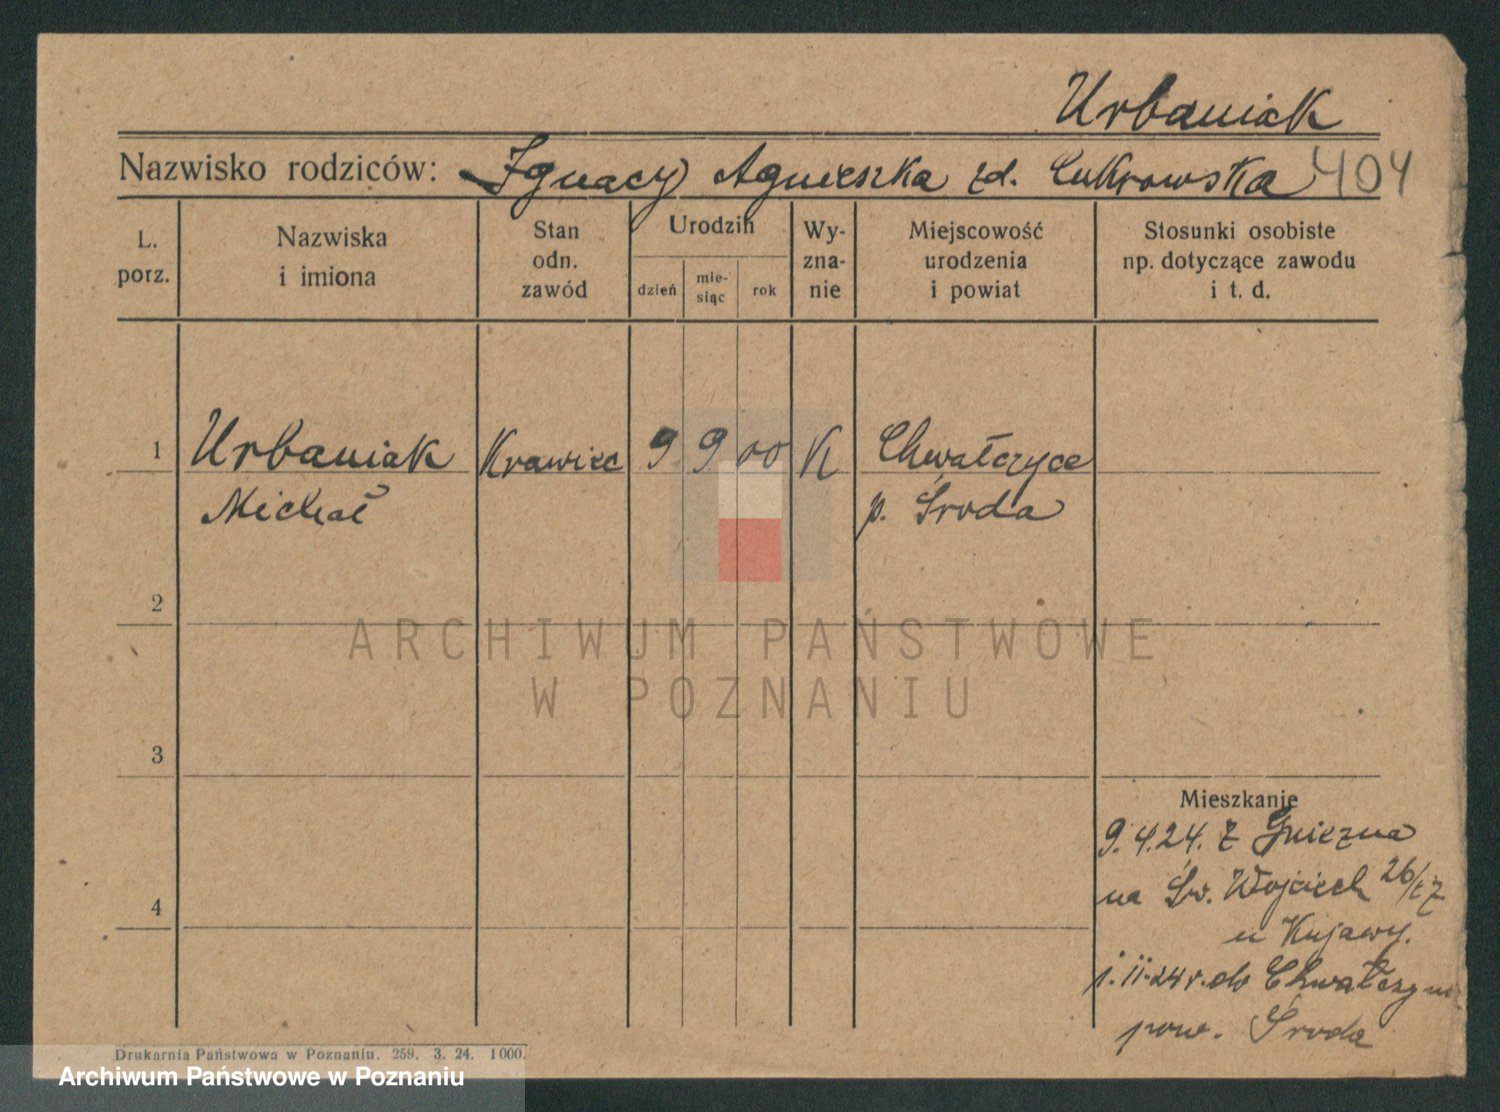 Urbaniak
Nazwisko rodziców: Ignacy Agnieszka zd. Cukrowska 404
L. porz.
Nazwiska i imiona
Stan odn. zawód
Urodzin
dzień
mie-siąc
rok
Wy-zna-nie
Miejscowość urodzenia i powiat
Stosunki osobiste np. dotyczące zawodu i t. d.
1 Urbaniak Krawiec 9 9 00 K Chwałczyce
Michał p. Środa
2
3
4
Mieszkanie
9.4.24. z Gniezna
na Św. Wojciech 26/
u Kujawy.
24 r. do
pow. Środa
Drukarnia Państwowa w Poznaniu. 259. 3. 24. 1000.
ARCHIWUM PAŃSTWOWE
W POZNANIU
Archiwum Państwowe w Poznaniu